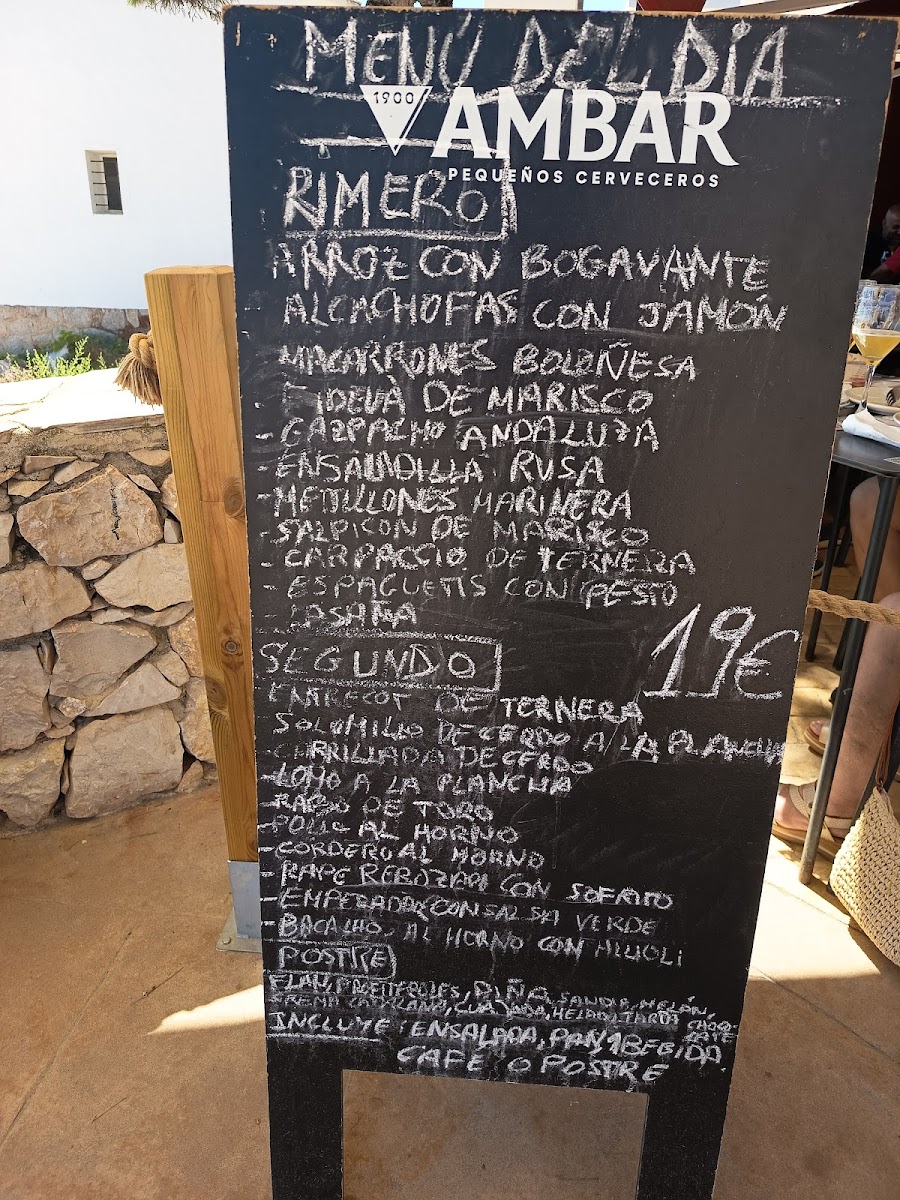 MENÚ DEL DÍA
1900
AMBAR
PEQUEÑOS CERVECEROS
RIMERO
ARROZ CON BOGAVANTE
ALCACHOFAS CON JAMÓN
MACARRONES BOLOÑESA
FIDEUÀ DE MARISCO
- GAZPACHO ANDALUZA
- ENSALADILLA RUSA
- MEJILLONES MARINERA
- SALPICON DE MARISCO
- CARPACCIO DE TERNERA
- ESPAGUETIS CON PESTO
- LASAÑA
19€
SEGUNDO
- ENTRECOT DE TERNERA
- SOLOMILLO DE CERDO A LA PLANCHA
- CARRILLADA DE CERDO
- LOMO A LA PLANCHA
- RABO DE TORO
- POLLO AL HORNO
- CORDERO AL HORNO
- RAPE REBOZADO CON SOFRITO
- EMPERADOR CON SALSA VERDE
- BACALHO AL HORNO CON ALLIOLI
POSTRE
FLAN, PROFITEROLES, PIÑA, SANDIA, MELÓN,
CREMA CATALANA, CUAJADA, HELADO, TARTA CHOCOLATE
INCLUYE: ENSALADA, PAN, 1 BEBIDA
CAFE O POSTRE